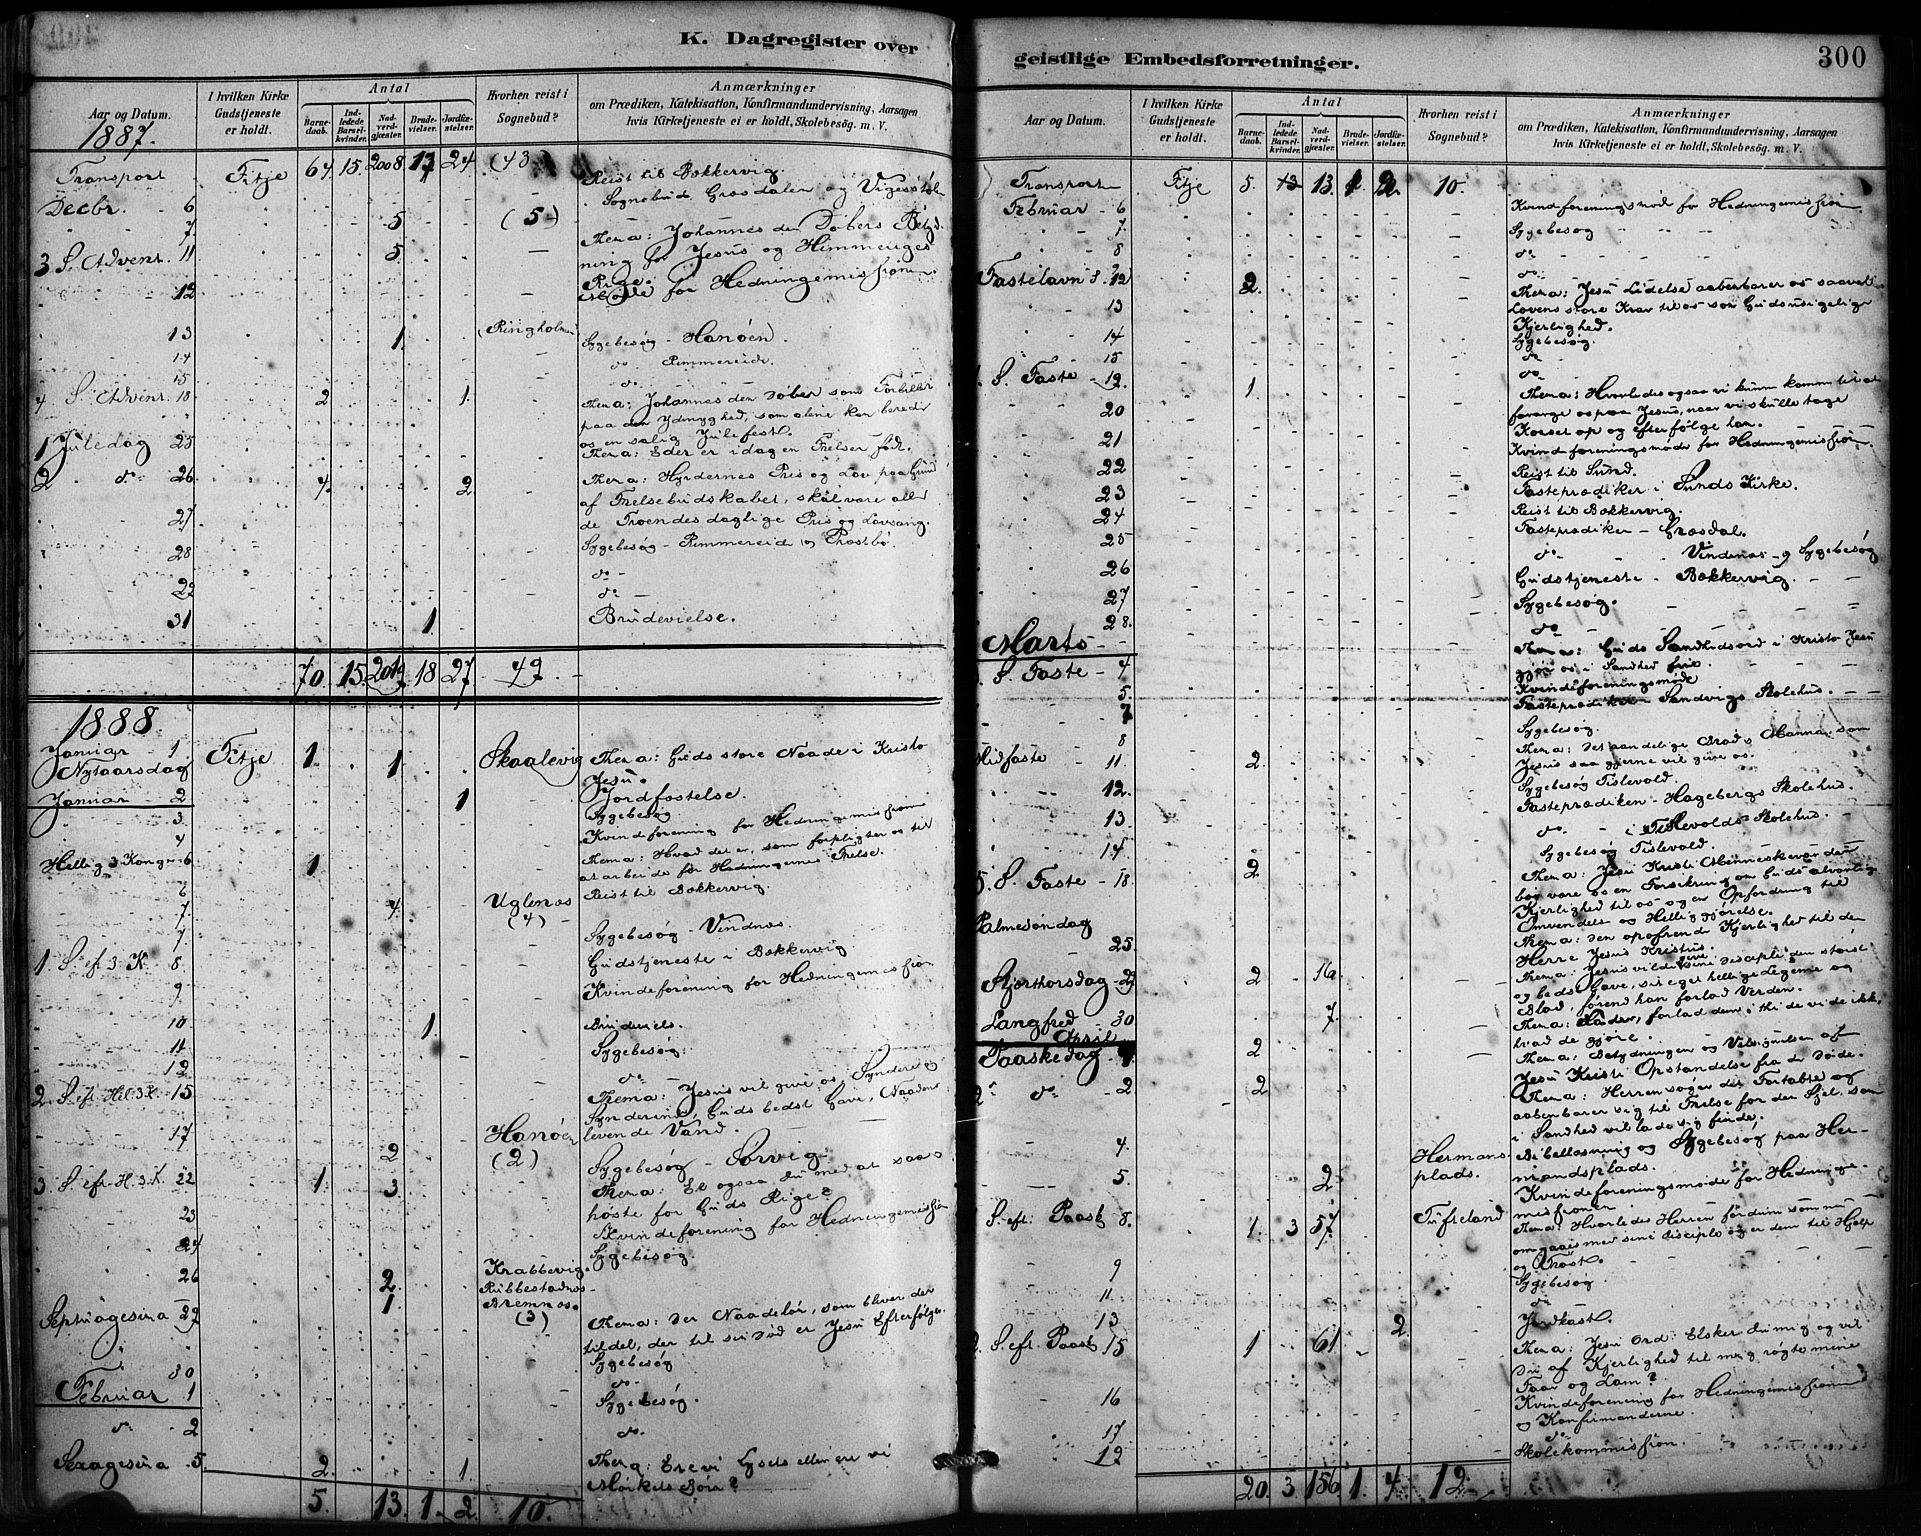 K. Dagregister over
Aar og Datum.
1887.
I hvilken Kirke
Gudstjeneste
er holdt.
Antal
Barne-
daab.
Ind-
ledede
Barsel-
kvinder.
Nad-
verd-
gjæster.
Brude-
vielser.
Jordfæ-
stelser.
Hvorhen reist i
Sognebud?
Anmærkninger
om Prædiken, Katekisation, Konfirmandundervisning, Aarsagen
hvis Kirketjeneste ei er holdt, Skolebesög. m. V.
Transport Fitje 64. 15. 2008 17 24 (43 Reist til Bækkervig.
Decbr. 6 Sognebud Græsdalen og
7. 5 (5) Thema: Johannes den Døbers Betyd
3 S. Advent. 11 5 ning for Jesus og Himmeriges
Rige.
12 Møde for Hedningemissionen.
13 1. (Ringholmen Sygebesøg - Hanøen.
14 do Rimmereide.
15 do
4 S. Advent. 18 2 1. Thema: Johannes den Døber som Forbillede
paa den Ydmyghed, som alene kan berede
os en salig Julefest.
1 Juledag 25 Thema: Eder er i dag en Frelser født.
2 do 26 4. 2 Thema: Hyrdernes Pris og Lov paa Grund
af Frelsebudskabet, skal være alle
27 de Troendes daglige Pris og Lovsang.
28 Sygebesøg - Rimmereide og Præstbø.
do
22 do
31 1. Brudevielse.
70. 15. 2019 18 27. 49.
1888
Januar 1 Fitje 1. 1 Skaalevig Thema: Guds store Naade i Kristo
Nytaarsdag Jesu.
Januar 2 1 Jordfæstelse.
3. Sygebesøg
4 Kvindeforening for Hedningemissionen
Hellig 3 Konger 6 1 Thema: Hvad det er, som forpligter os til
at arbeide for Hedningernes Frelse.
6 Reist til Bækkervig.
7. 4 Uglenæs
(4)
7 Sygebesøg - Vindnæs.
1. S. ef. 3 K. 8 Gudstjeneste i Bækkervig
9 Kvindeforening for Hedningemission
10 1 Brudeviels.
11 Sygebesøg.
12 do
2. S. eft. Hel. 3 K. 15 Thema: Jesus vil give os Syndere og
Synderinder, Guds bedste Gave, Naadens
levende Vand.
17 2 Hanøen
(2) Sygebesøg - Sørvig
3. S. eft. H. 3 K. 22 1. 3 Thema: Er ogsaa du med at saa og
høste for Guds Rige?
23 Kvindeforening for Hedningemission
24 Sygebesøg.
26 2 Krabbevig.
1. Rubbestadnæs
Bremnæs.
(3)
Septuagesima 29 Thema: Der Naadeløn, som bliver der
tildel, der til sin Død er Jesu Efterfølger.
Sygebesøg
30 do
Februar 1 Sygebesøg.
do 2 do.
Sexagesima 5. 2. 1. Thema: Ere vi Lysets eller ere vi
Mørkets Børn?
5. 13. 1. 2. 10.
geistlige Embedsforretninger.
300
Aar og Datum.
I hvilken Kirke
Gudstjeneste
er holdt.
Antal
Barne-
daab.
Ind-
ledede
Barsel-
kvinder.
Nad-
verd-
gjæster.
Brude-
vielser.
Jordfæ-
stelser.
Hvorhen reist i
Sognebud?
Anmærkninger
om Prædiken, Katekisation, Konfirmandundervisning, Aarsagen
hvis Kirketjeneste ei er holdt, Skolebesög. m. V.
Transport Fitje 5. 13. 1 2. 10.
Februar 6 Kvindforeningsmød for Hedningemission
7. Sygebesøg
8 do
9 do
Fastelavn S. 12 2. Thema: Jesu Lidelse aabenbarer os saavel
Lovens store Krav til os som Guds usigelige
13 Kjerlighed.
14 Sygebesøg.
15 do
do
S. Faste 19. 1. Thema: Hvorledes ogsaa vi kunne komme til at
forarge os paa Jesus, naar vi skulle tage
20 Korset op og efterfølge ham.
21 Kvindforeningsmøde for Hedningemission.
22 Reist til Sund.
23 Fasteprædiken i Sunds Kirke.
24 Reist til Bækkervig.
25 Fasteprædiken - Græsdal.
do Vindenæs og Sygebesøg
26 Gudstjeneste - Bækkervig.
27 Sygebesøg.
28. do
Marts
S. Faste 4 Thema: Guds Sandhedsord i Kristo Jesu
gjør os i Sandhed frie.
5. Kvindeforeningsmøde
7 Fasteprædiken Sandvigs Skolehus.
8 Sygebesøg.
Midfaste 11. 2. Thema: Det aandelige Brød, Manna, som
Jesus saa gjerne vil give os.
12. Sygebesøg Tislevold.
13. Fasteprædiken - Hageberg Skolehus.
14. do i Tislevolds Skolehus.
Sygebesøg Tislevold.
5. S. Faste 18. 2. Thema: Jesu Kristi Menneskeværden
bør være os en Forsikring om Guds alvorlige
Kjerlighed til os og en Opfordring til
Omvendelse og Helliggjørelse.
Palmesøndag
25. Thema: Den opofrende Kjerlighed til den
Herre Jesus Kristus.
Skjærthorsdag 29 2 16. Thema: Jesus vilde give sine Disciple den største
og bedste Gave, sit eget hellige Legeme og
Blod, førend han forlod Verden.
Langfred 30 7 Thema: Fader, forlad dem; thi de vide ikke,
hvad de gjøre.
April
Paaskedag 1. 2 Thema: Betydningen og Velsignelsen af
Jesu Kristi Opstandelse fra de Døde.
2 do 2 2 Thema: Herren søger det Fortabte og
aabenbarer sig til Frelse for den Sjel, som
i Sandhed vil lade sig finde.
4. Hermans- Bibellæsning og Sygebesøg paa Her-
5. 2. plads. mandsplads.
Kvindeforeningsmøde for Hedninge-
missionen.
S. eft. Paask 8. 1. 3 57. Tufteland Thema: Hvorledes Herren fordum som nu
omgaaes med sine Disciple og er dem til Hjælp
og Trøst.
9 Sygebesøg.
11 do
13 2. Jordkast.
S. eft. Paask 15 1 61 Thema: Jesu Ord: Elsker du mig og vil
Du af Kjerlighed til mig røgte mine
Faar og Lam?
16 Kvindeforening for Hedningemission
og Konfirmanderne.
17 do
19 Skolekommission.
20. 3. 156 1. 4. 12.